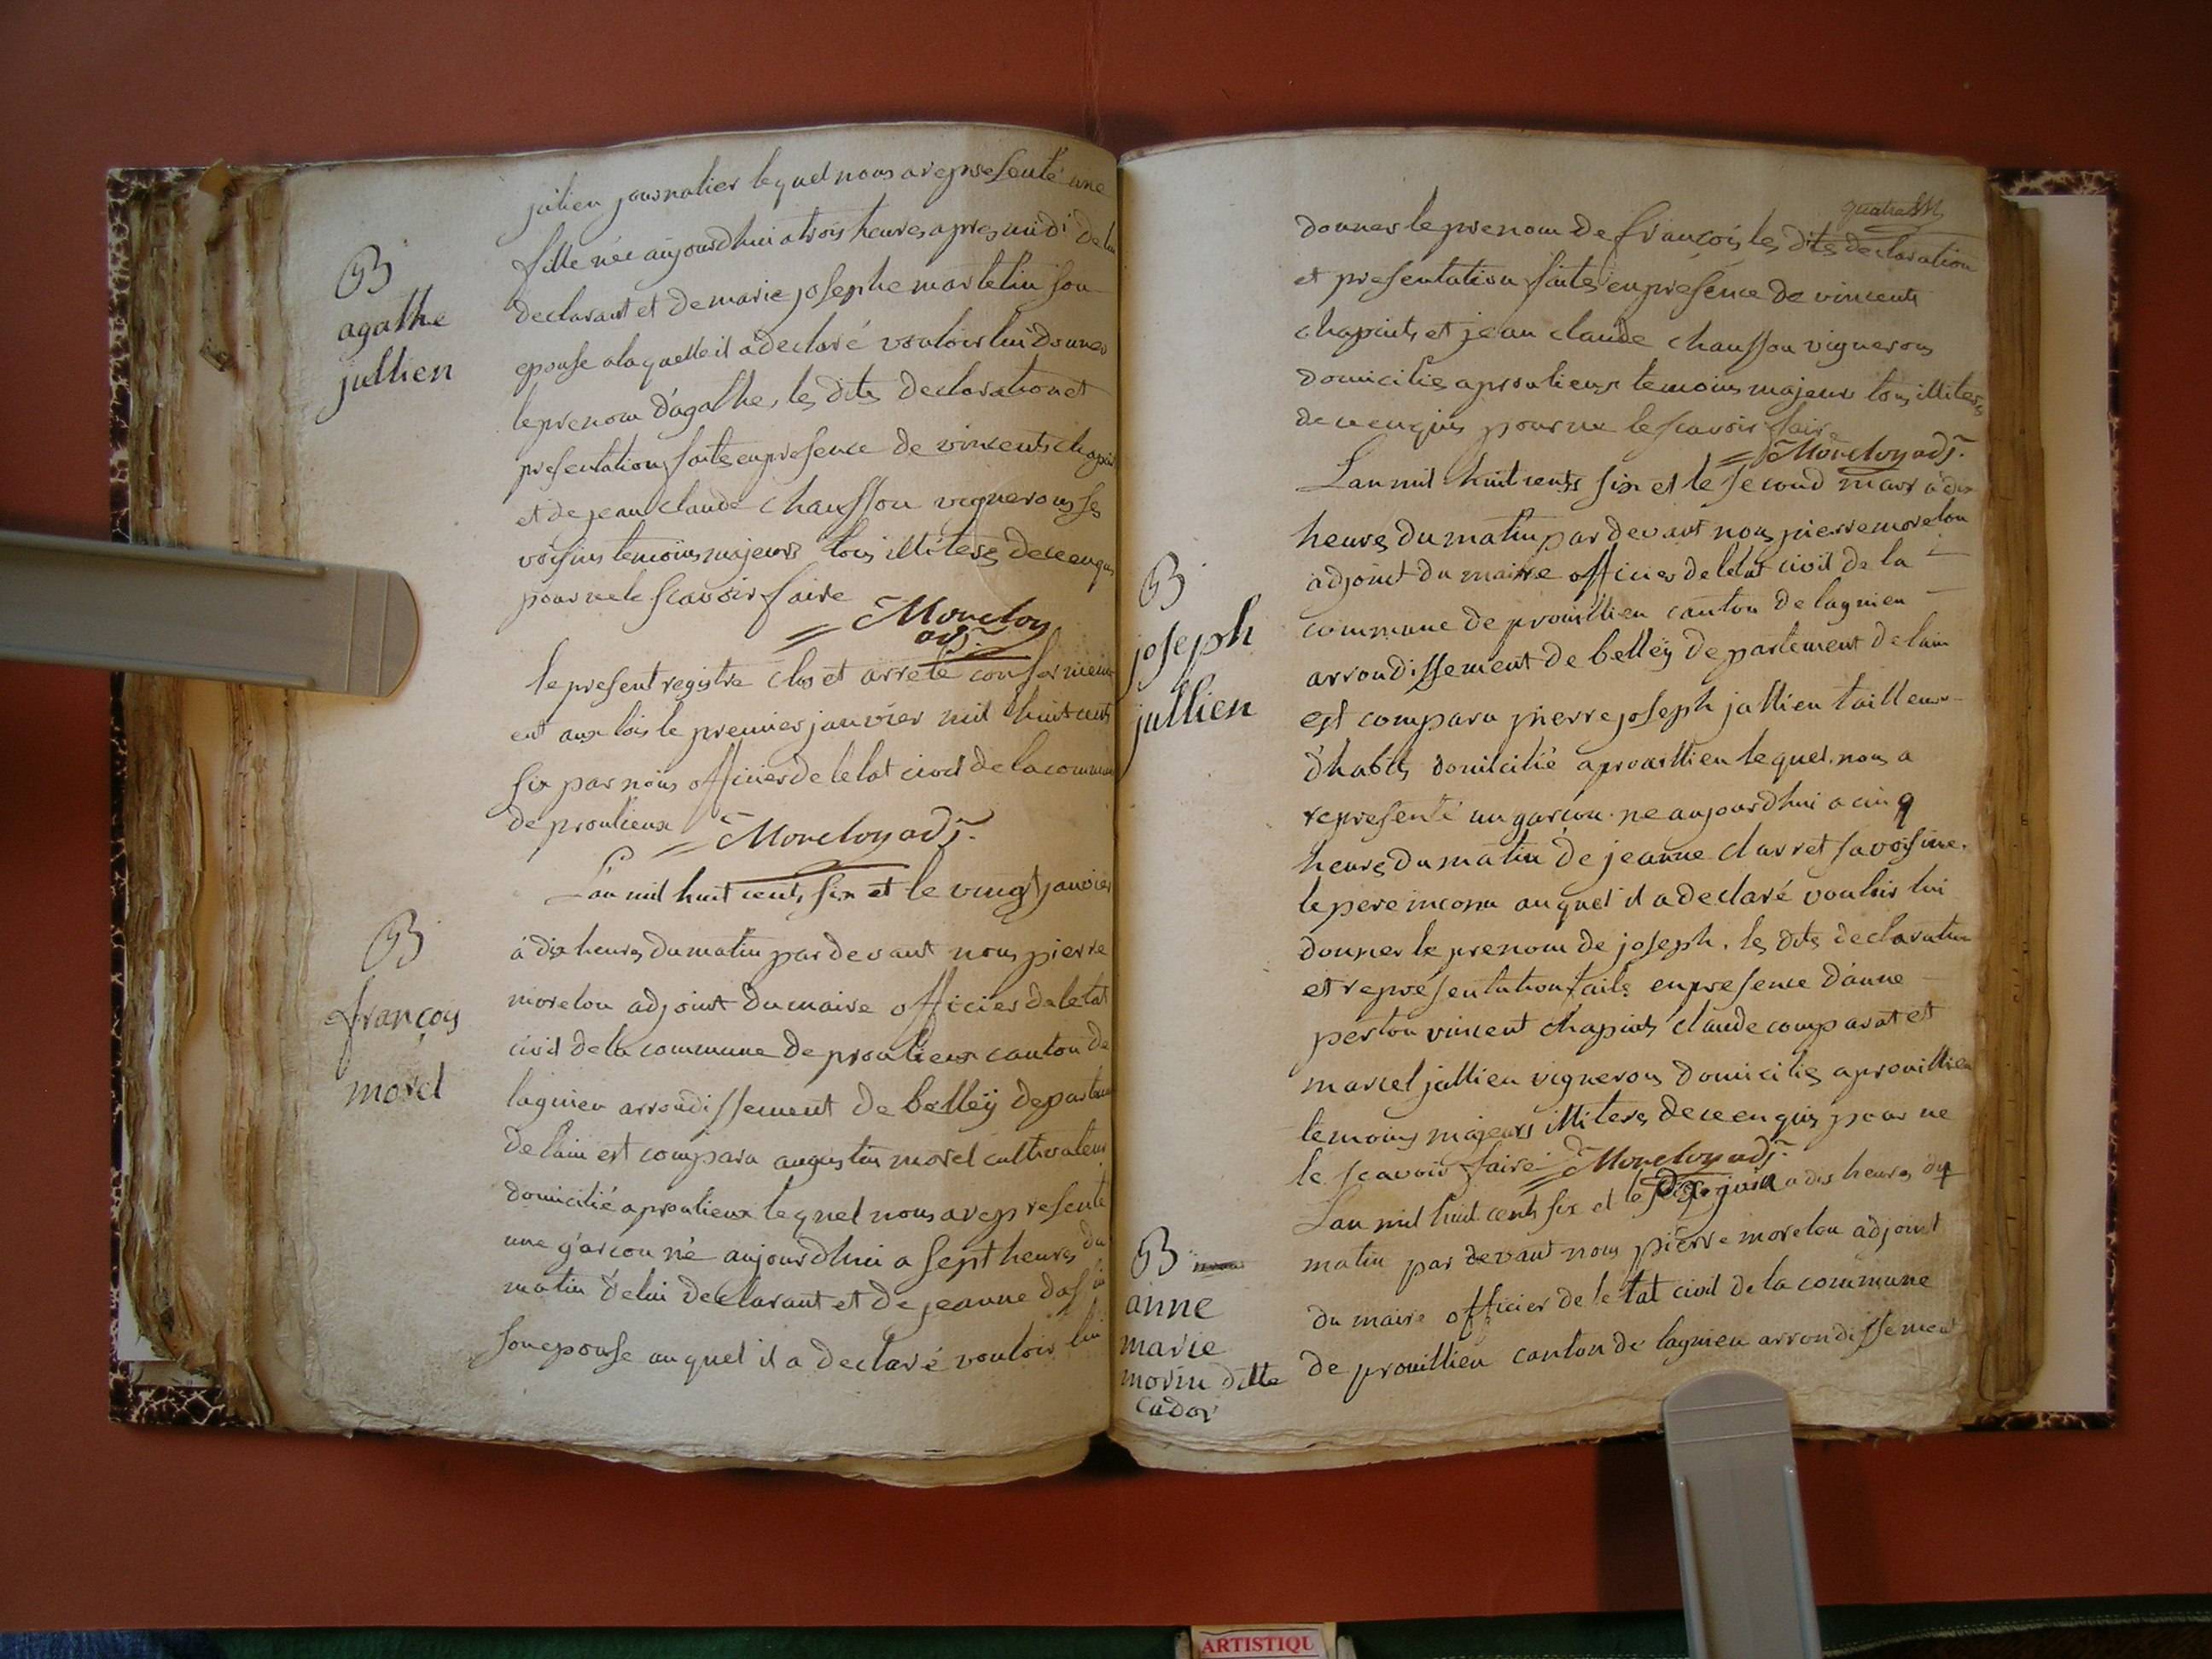 julien journalier lequel nous a representé une
B
agathe
jullien
fille née aujourdhui a trois heures apres midi de lui
declarant et de marie josephe martelin son
epouse a laquelle il a declaré vouloir lui donner
le prenom d'agathe, les dits declaration et
presentation faite en presence de vincents chapuit
et de jean claude chausson vignerons ses
voisins temoins majeurs tous illiteres de ce enquis
pour ne le scavoir faire
Morelon
adj.
le present registre clos et arreté conformem
ent aux lois le premier janvier mil huit cents
six par nous officier de letat civil de la commune
de proulieux Morelon adj.
L'an mil huit cents six et le vingt janvier
B
françois
morel
à dix heures du matin par devant nous pierre
morelon adjoint du maire officier de letat
civil de la commune de proulieux canton de
lagnieu arrondissement de belley departem
de lain est comparu augustin morel cultivateur
domicilié a proulieux lequel nous a representé
une garcon né aujourdhui a sept heures du
matin de lui declarant et de jeanne
son epouse auquel il a declaré vouloir lui
donner le prenom de francois les dits declaration
et presentation faites en presence de vincents
chapuits et jean claude chausson vignerons
domicilies a proulieux temoins majeurs tous illiteres
de ce enquis pour ne le scavoir faire
Morelon adj.
B
joseph
jullien
L'an mil huit cents six et le second mars à dix
heures du matin par devant nous pierre morelon
adjoint du maire officier de letat civil de la
commune de prouillieu canton de lagnieu
arrondissement de belley departement de lain
est comparu pierre joseph jullien tailleur
d'habits domicilié a prouillieu lequel nous a
representé un garcon né aujourdhui a cinq
heures du matin de jeanne clarret sa voisine.
le pere inconu auquel il a declaré vouloir lui
donner le prenom de joseph. les dits declaration
et representation faite en presence d'anne
perton vincent chapuits claude comparat et
marcel jullien vignerons domicilies a prouillieu
temoins majeurs illiteres de ce enquis pour ne
le scavoir faire Morelon adj.
L'an mil huit cents six et le juin a dix heures du
B
anne
marie
morin ditte
cador
matin par devant nous pierre morelon adjoint
du maire officier de letat civil de la commune
de prouillieu canton de lagnieu arrondissement
ARTISTIQU